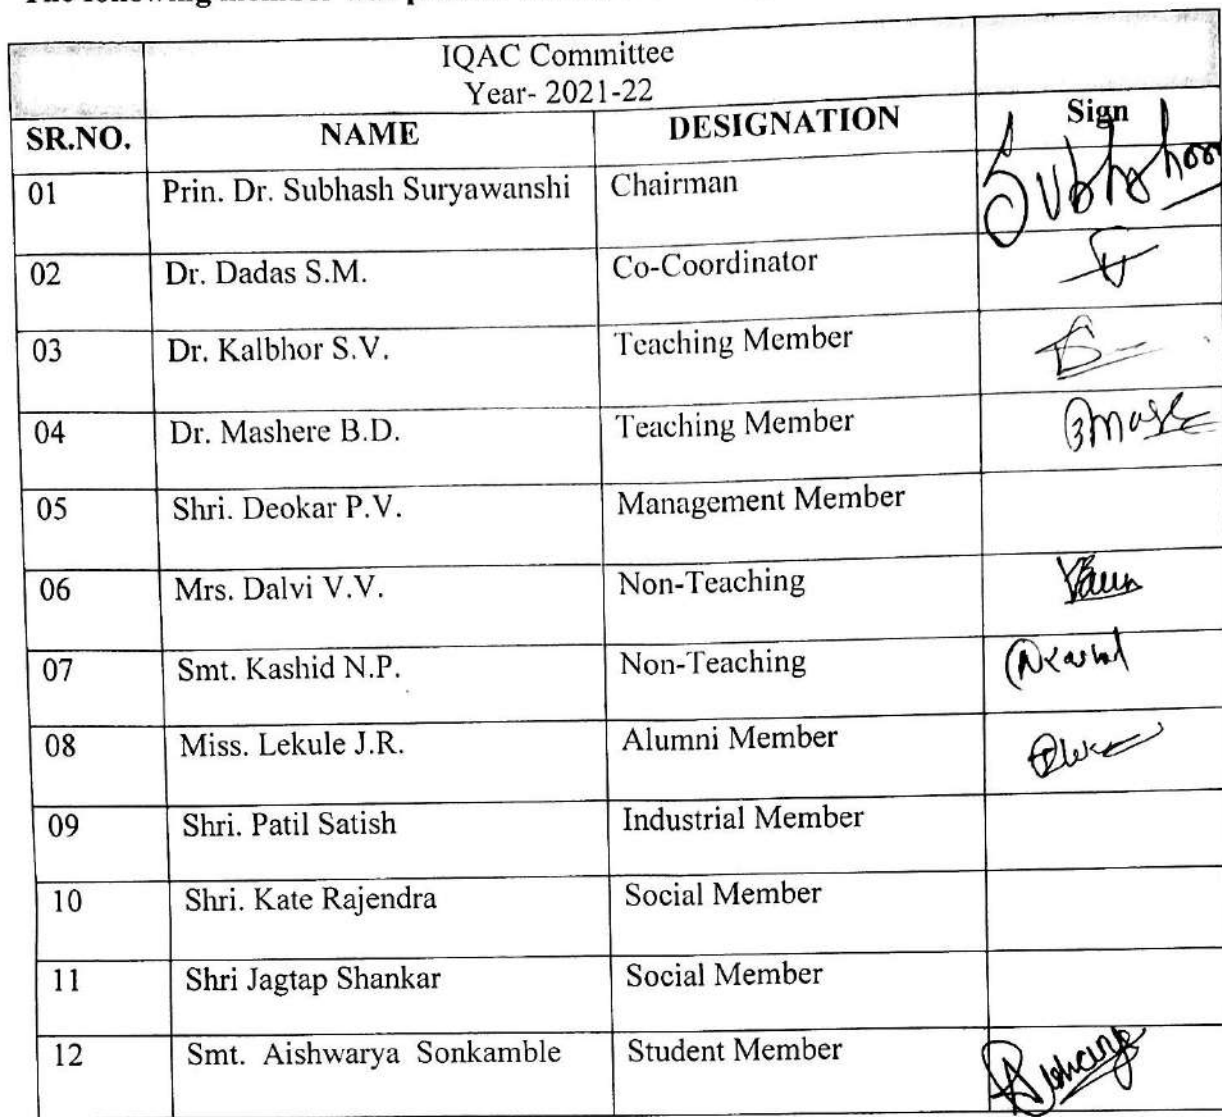 The following member was present
IQAC Committee
Year- 2021-22
SR.NO. NAME DESIGNATION Sign
01 Prin. Dr. Subhash Suryawanshi Chairman
02 Dr. Dadas S.M. Co-Coordinator
03 Dr. Kalbhor S.V. Teaching Member
04 Dr. Mashere B.D. Teaching Member
05 Shri. Deokar P.V. Management Member
06 Mrs. Dalvi V.V. Non-Teaching
07 Smt. Kashid N.P. Non-Teaching
08 Miss. Lekule J.R. Alumni Member
09 Shri. Patil Satish Industrial Member
10 Shri. Kate Rajendra Social Member
11 Shri Jagtap Shankar Social Member
12 Smt. Aishwarya Sonkamble Student Member